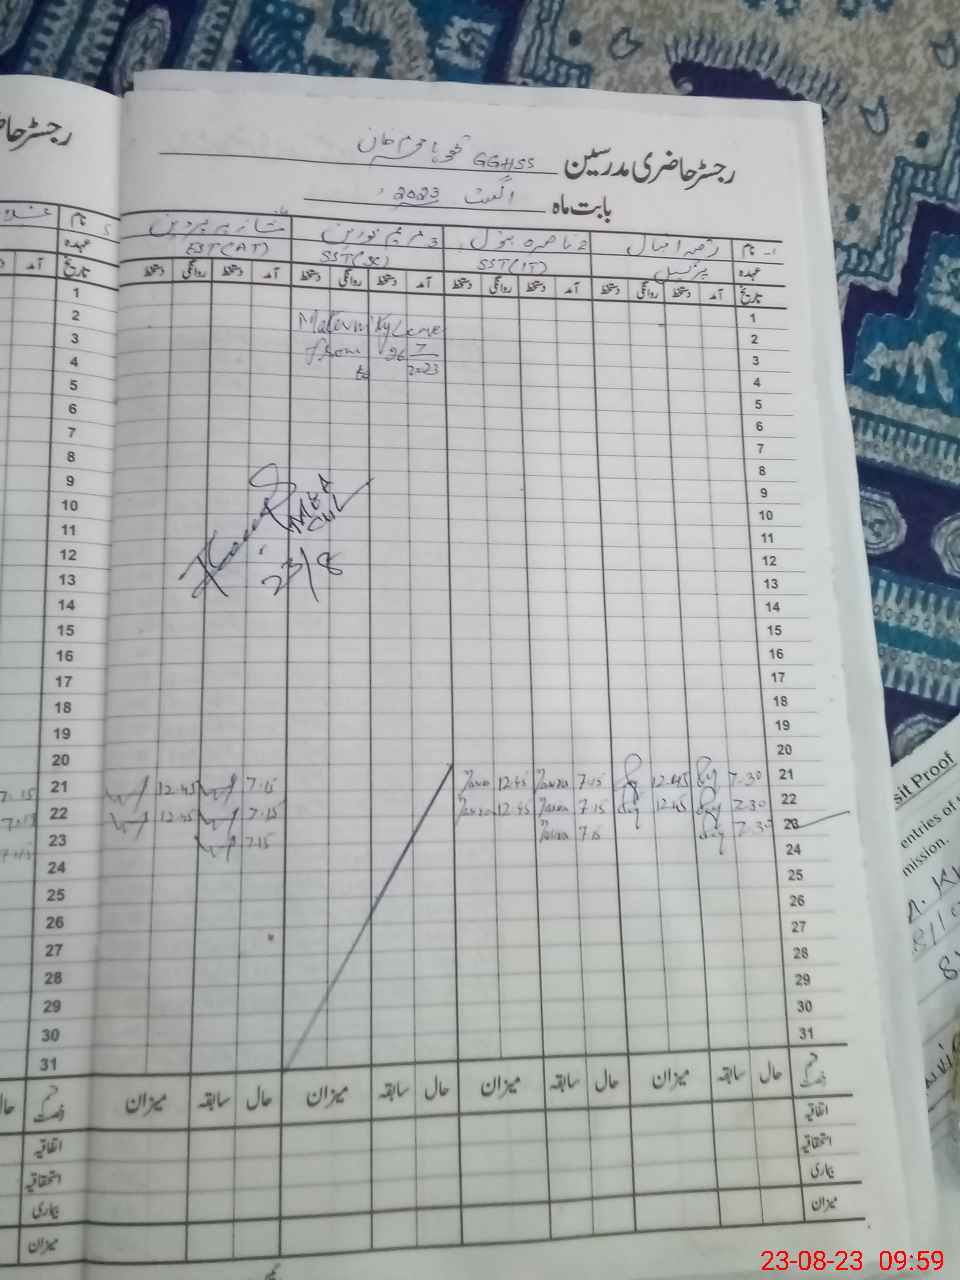 رجسٹر حاضری مدرسین GGHSS
بابت ماہ اگست 2023
۱۔ نام 2 ناصرہ بتول 3 مریم نورین شازیہ پروین
عہدہ پرنسپل SST(IT) SST(SC) EST(AT)
تاریخ آمد دستخط روانگی دستخط آمد دستخط روانگی دستخط آمد دستخط روانگی دستخط آمد دستخط روانگی دستخط تاریخ
1 1
2 Maternity Leave 2
3 from 26 7 3
4 to 2023 4
5 5
6 6
7 7
8 8
9 9
10 10
11 11
12 23/8 12
13 13
14 14
15 15
16 16
17 17
18 18
19 19
20 20
21 7.30 12.45 7.15 12.45 7.15 12.45 21 7.15
22 7.30 12.45 7.15 12.45 7.15 12.45 22 7.15
23 7.30 7.15 7.15 23 7.15
24 24
25 25
26 26
27 27
28 28
29 29
30 30
31 31
قسم رخصت حال سابقہ میزان حال سابقہ میزان حال سابقہ میزان حال سابقہ میزان قسم رخصت حال
اتفاقیہ اتفاقیہ
استحقاقیہ استحقاقیہ
بیماری بیماری
میزان میزان
رجسٹر حا
نام
عہدہ
آمد
sit Proof
entries of
mission.
23-08-23 09:59